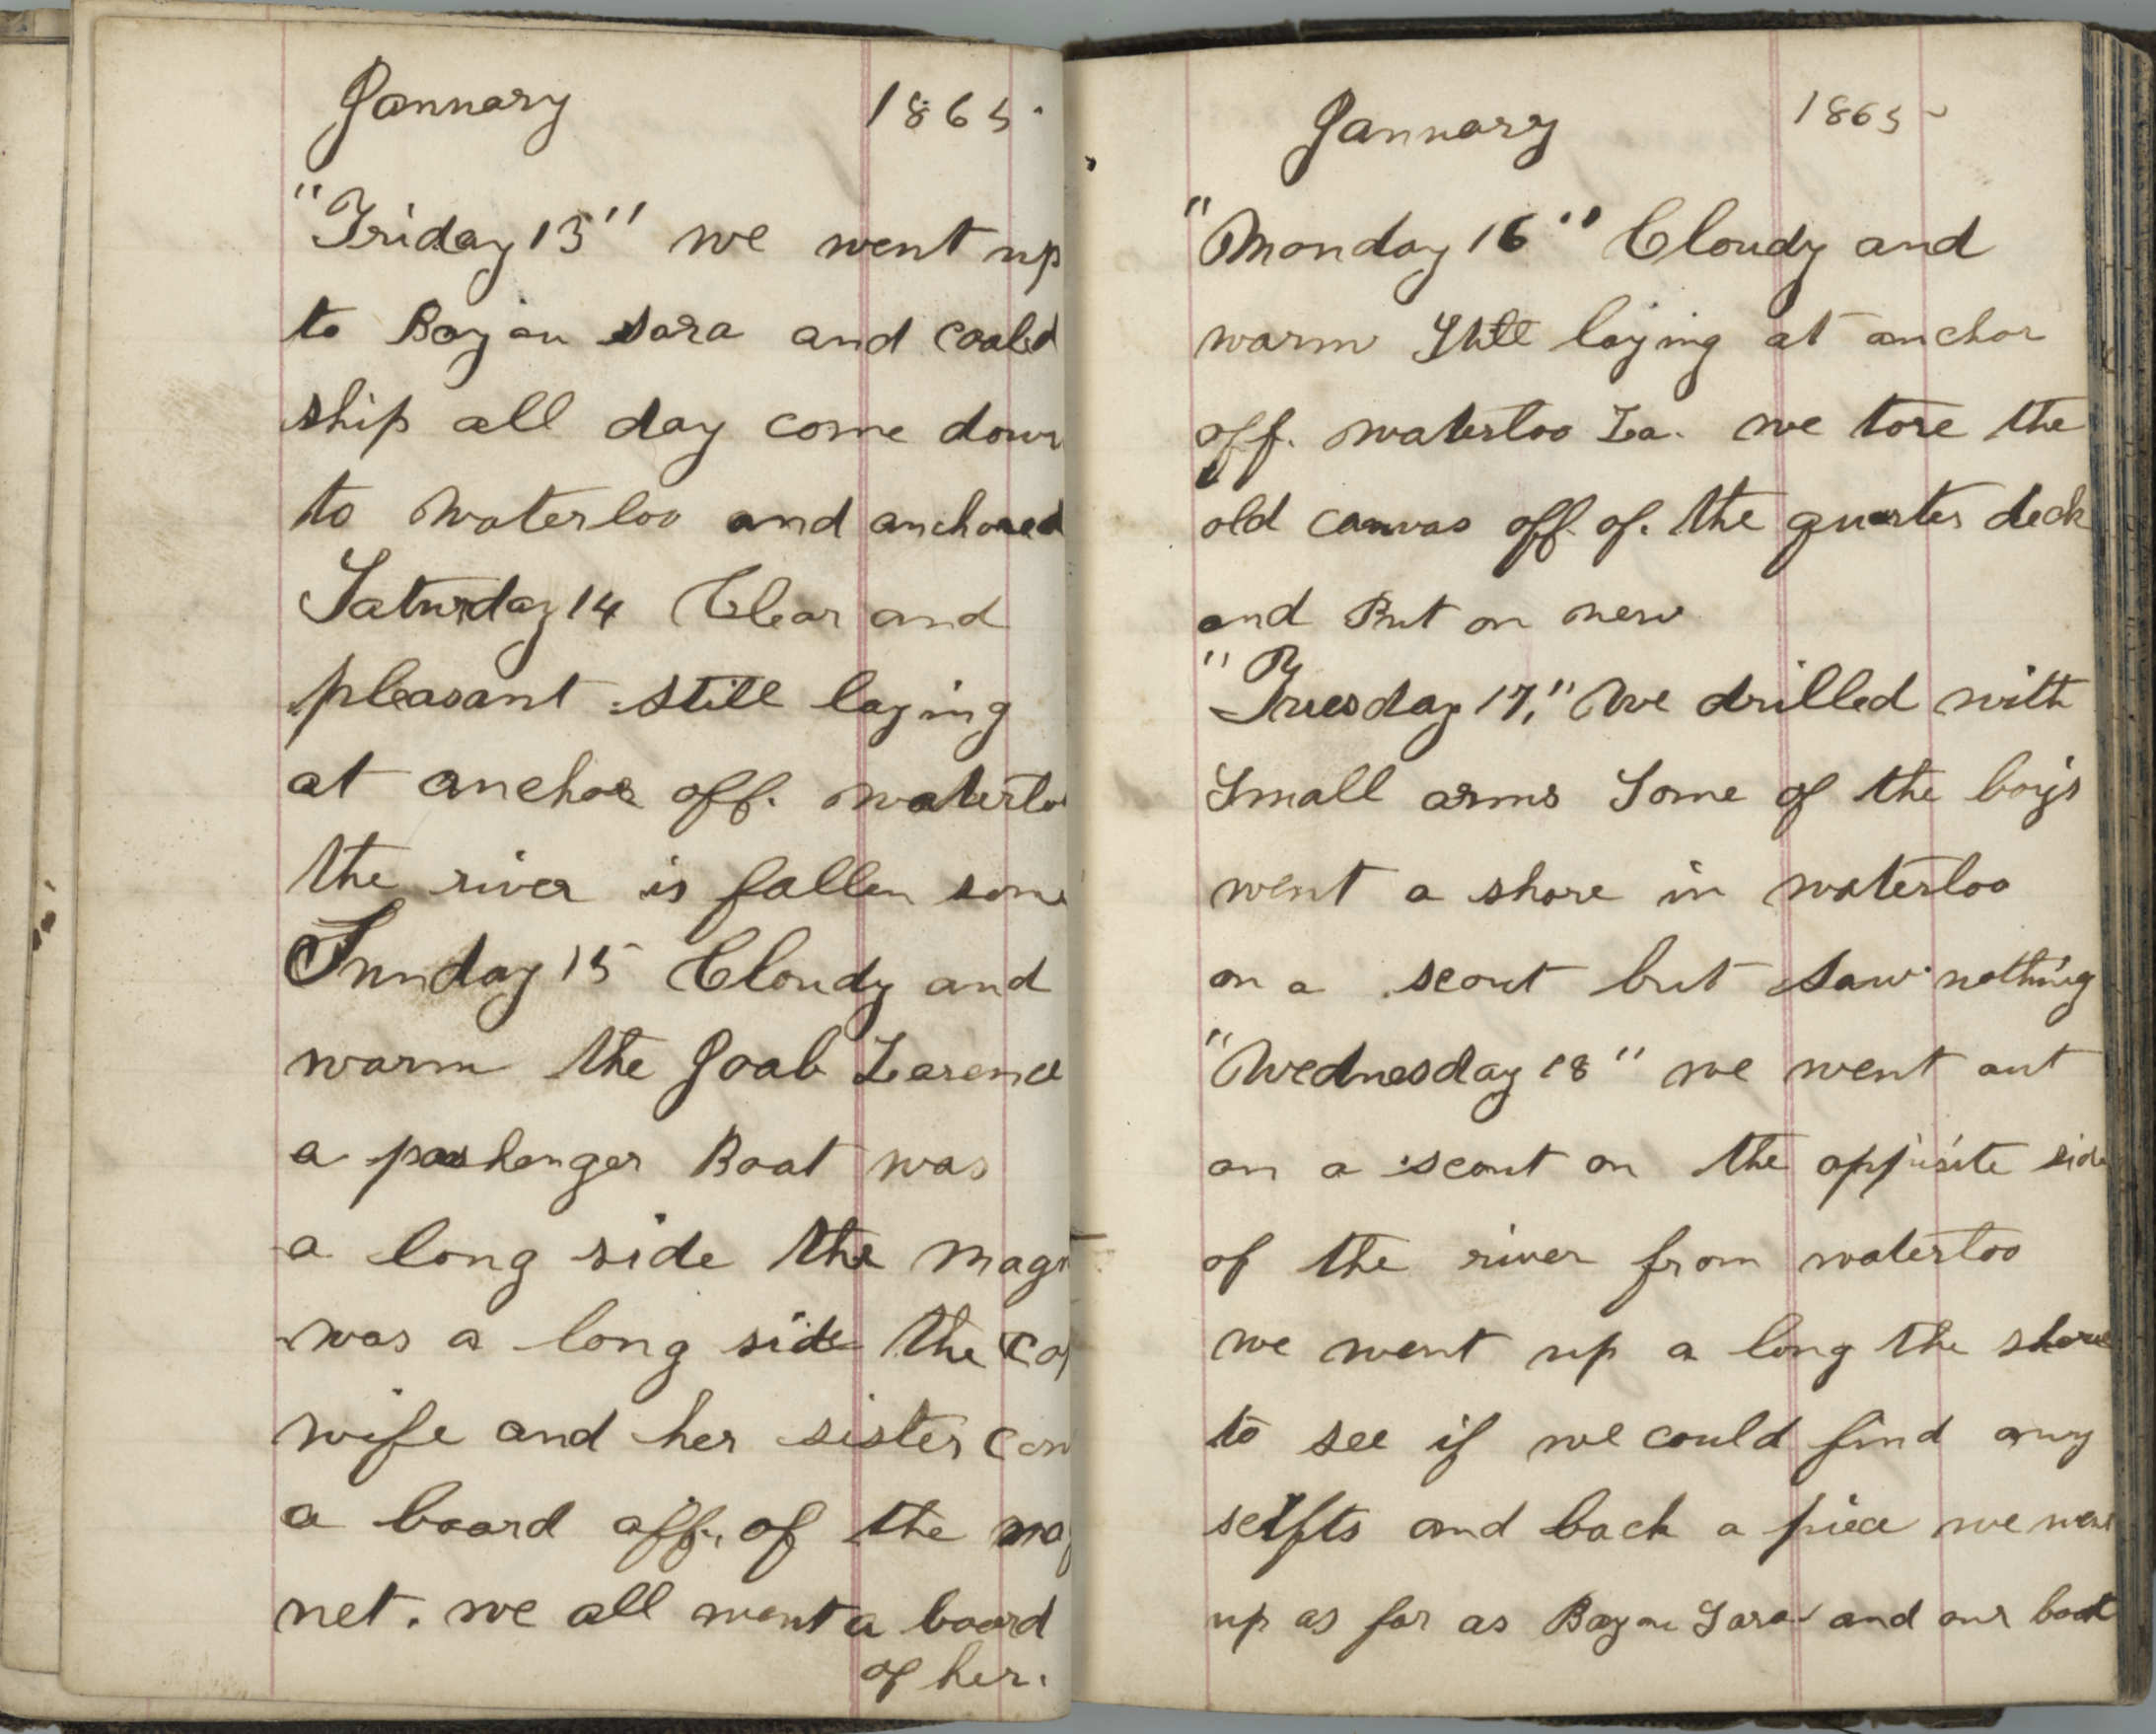 January 1865
"Friday 13" we went up
to Bayou sara and coaled
ship all day come down
to Waterloo and anchored
Saturday 14 Clear and
pleasant still laying
at anchor off. Waterloo
the river is fallen some
Sunday 15 Cloudy and
warm the Joab Larence
a pashenger Boat was
a long side the Mag
was a long side the Cap
wife and her sister com
a board off. of the mag
net. we all went a board
of her.
January 1865
"Monday 16" Cloudy and
warm Still laying at anchor
off. Waterloo La. we tore the
old canvas off of. the quarter deck
and Put on new
"Tuesday 17," We drilled with
Small arms Some of the boys
went a shore in Waterloo
on a scout but saw nothing
"Wednesday 18" we went out
on a scout on the oppisite side
of the river from waterloo
we went up a long the shore
to see if we could find any
scifts and back a piece we went
up as far as Bayou Sara and our boat